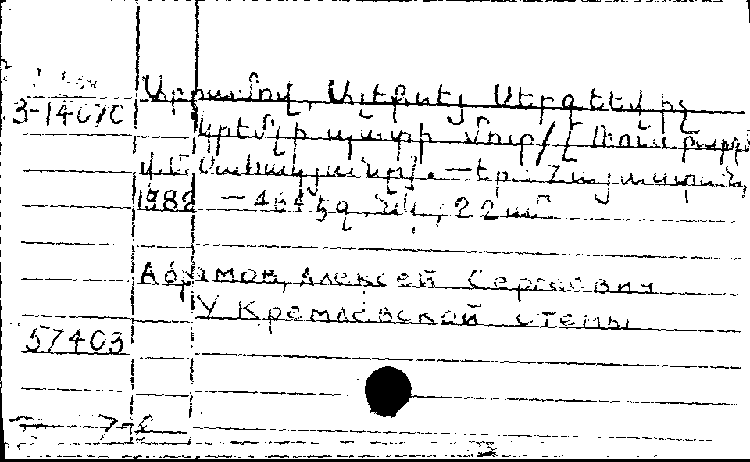 Աբրամով, Ալեքսեյ Սերգեևիչ
3-1467С
Կրեմլի պատի մոտ / Ռուս. թարգմ.
Եր.: Հայաստան,
1982 — 464 էջ, նկ., 22 սմ
Абрамов, Алексей Сергеевич
У Кремлевской стены
57403